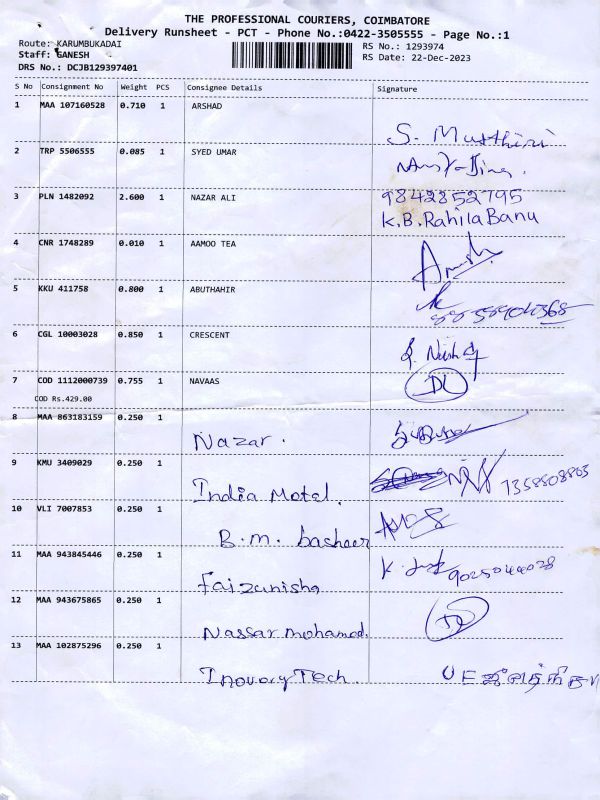 THE PROFESSIONAL COURIERS, COIMBATORE
Delivery Runsheet - PCT - Phone No.:0422-3505555 - Page No.:1
Route: KARUMBUKADAI
Staff: GANESH
DRS No.: DCJB129397401
RS No.: 1293974
RS Date: 22-Dec-2023
S No Consignment No Weight PCS Consignee Details Signature
1 MAA 107160528 0.710 1 ARSHAD
S.
2 TRP 5506555 0.085 1 SYED UMAR
3 PLN 1482092 2.600 1 NAZAR ALI 9842852795
K.B.Rahila Banu
4 CNR 1748289 0.010 1 AAMOO TEA
5 KKU 411758 0.800 1 ABUTHAHIR
6 CGL 10003028 0.850 1 CRESCENT
7 COD 1112000739 0.755 1 NAVAAS DL
COD Rs.429.00
8 MAA 863183159 0.250 1
Nazar.
9 KMU 3409029 0.250 1
India Motel.
10 VLI 7007853 0.250 1
B.m. basheer
11 MAA 943845446 0.250 1
Faizunisha
12 MAA 943675865 0.250 1
Nassar mohamed.
13 MAA 102875296 0.250 1